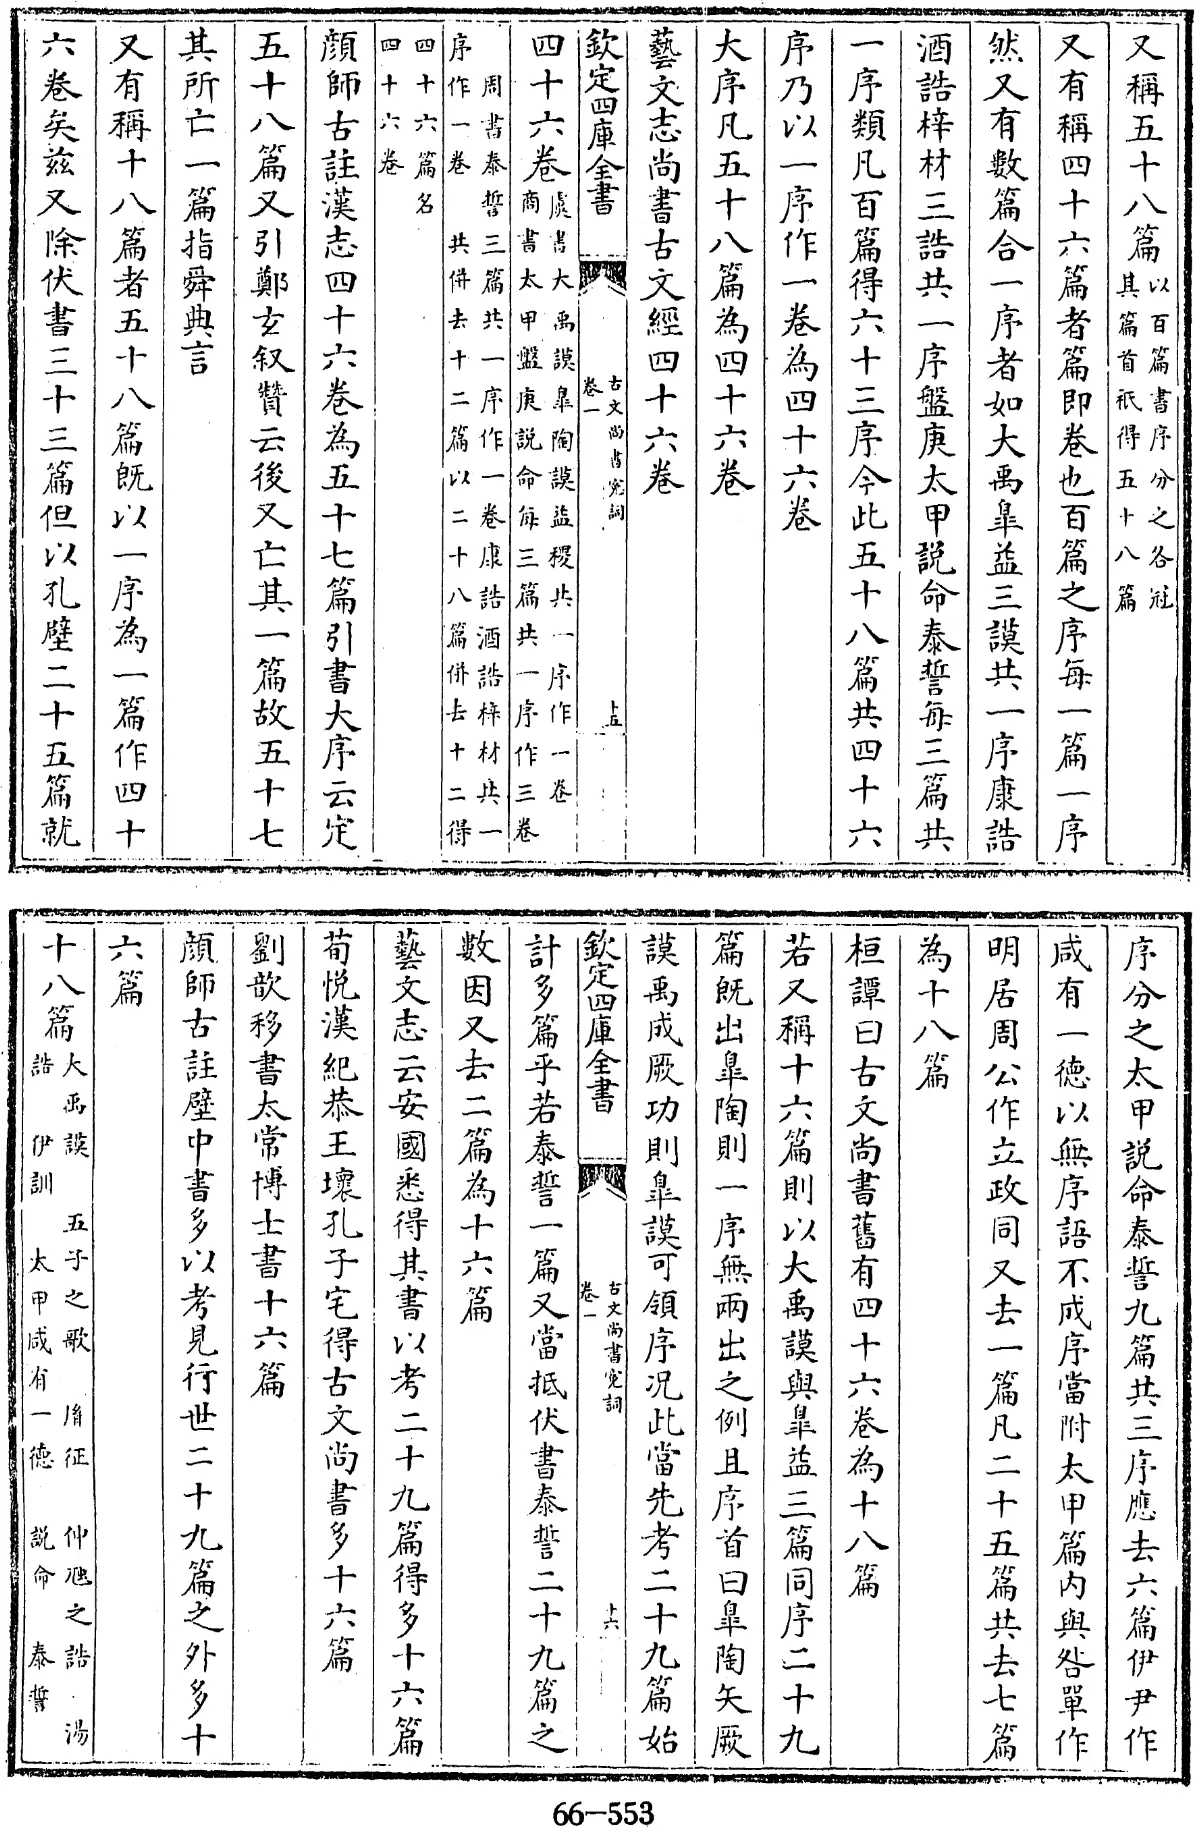 又稱五十八篇以百篇書序分之各冠其篇首祇得五十八篇
又有稱四十六篇者篇即卷也百篇之序每一篇一序
然又有數篇合一序者如大禹臯益三謨共一序康誥
酒誥梓材三誥共一序盤庚太甲説命泰誓每三篇共
一序類凡百篇得六十三序今此五十八篇共四十六
序乃以一序作一卷為四十六卷
大序凡五十八篇為四十六卷
藝文志尚書古文經四十六卷
欽定四庫全書
古文尚書寃詞
卷一
十五
四十六卷虞書大禹謨臯陶謨益稷共一序作一卷商書太甲盤庚説命每三篇共一序作三卷
周書泰誓三篇共一序作一卷康誥酒誥梓材共一序作一卷 共併去十二篇以二十八篇併去十二得
四十六篇名四十六卷
顔師古註漢志四十六卷為五十七篇引書大序云定
五十八篇又引鄭玄叙贊云後又亡其一篇故五十七
其所亡一篇指舜典言
又有稱十八篇者五十八篇既以一序為一篇作四十
六卷矣兹又除伏書三十三篇但以孔壁二十五篇就
序分之太甲説命泰誓九篇共三序應去六篇伊尹作
咸有一德以無序語不成序當附太甲篇内與咎單作
明居周公作立政同又去一篇凡二十五篇共去七篇
為十八篇
桓譚曰古文尚書舊有四十六卷為十八篇
若又稱十六篇則以大禹謨與臯益三篇同序二十九
篇既出臯陶則一序無兩出之例且序首曰臯陶矢厥
謨禹成厥功則臯謨可領序况此當先考二十九篇始
欽定四庫全書
古文尚書寃詞
卷一
十六
計多篇乎若泰誓一篇又當抵伏書泰誓二十九篇之
數因又去二篇為十六篇
藝文志云安國悉得其書以考二十九篇得多十六篇
荀悦漢紀恭王壞孔子宅得古文尚書多十六篇
劉歆移書太常博士書十六篇
顔師古註壁中書多以考見行世二十九篇之外多十
六篇
十八篇大禹謨 五子之歌 胤征 仲虺之誥 湯誥 伊訓 太甲咸有一德 説命 泰誓
66-553